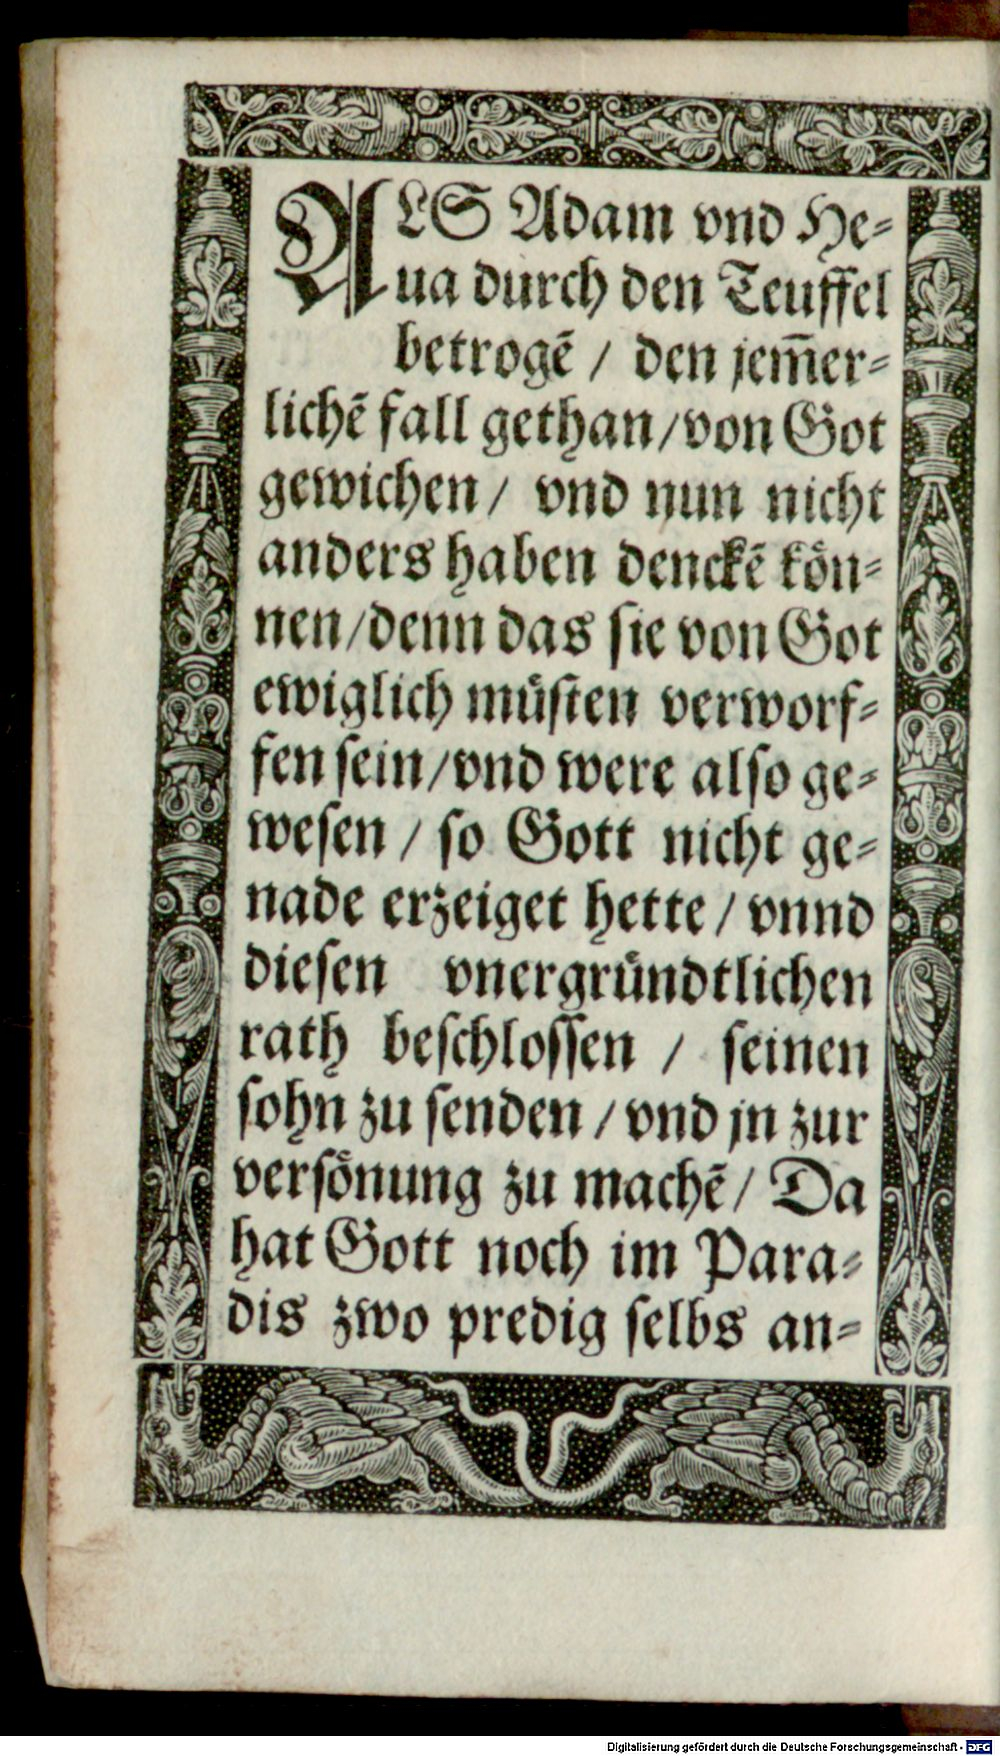 ALS Adam vnd He-
ua durch den Teuffel
betrogẽ / den jem̃er-
lichẽ fall gethan / von Got
gewichen / vnd nun nicht
anders haben denckẽ koͤn-
nen / denn das sie von Got
ewiglich muͤsten verworf-
fen sein / vnd were also ge-
wesen / so Gott nicht ge-
nade erzeiget hette / vnnd
diesen vnergruͤndtlichen
rath beschlossen / seinen
sohn zu senden / vnd jn zur
versoͤnung zu machẽ / Da
hat Gott noch im Para-
dis zwo predig selbs an-
Digitalisierung gefördert durch die Deutsche Forschungsgemeinschaft - DFG